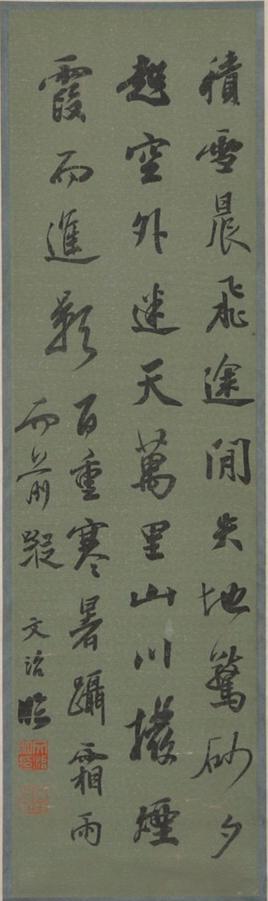 積雪晨飛途閒失地驚砂夕
起空外迷天萬里山川撥煙
霞而進影百重寒暑躡霜雨
而前蹤
文治臨